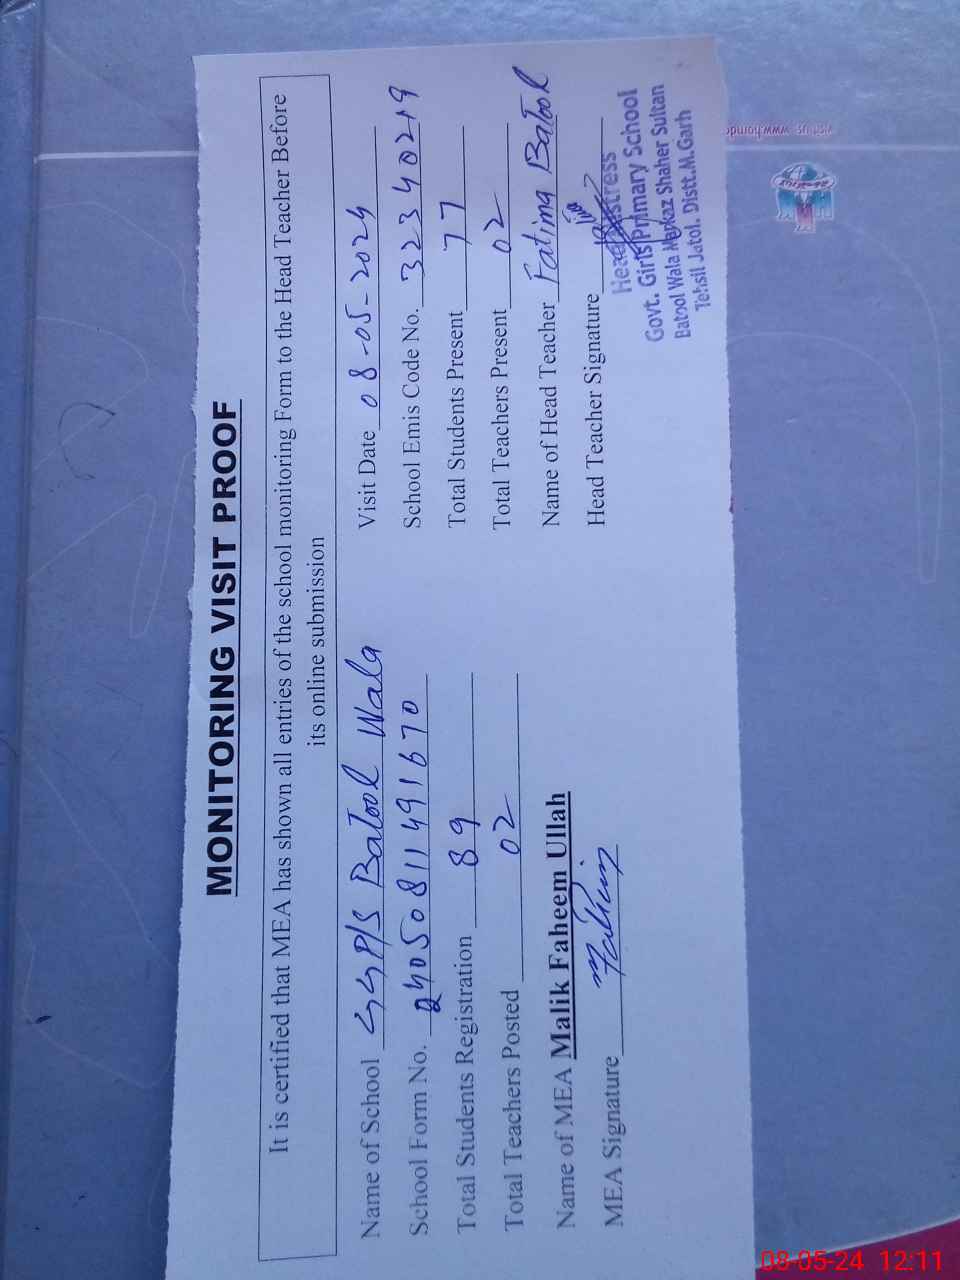 MONITORING VISIT PROOF
It is certified that MEA has shown all entries of the school monitoring Form to the Head Teacher Before
its online submission
Name of School GGP/S Batool Wala Visit Date 08-05-2024
School Form No. 24050811491670 School Emis Code No. 32340219
Total Students Registration 89 Total Students Present 77
Total Teachers Posted 02 Total Teachers Present 02
Name of MEA Malik Faheem Ullah Name of Head Teacher Fatima Batool
MEA Signature Head Teacher Signature
Headmistress
Govt. Girls Primary School
Batool Wala Markaz Shaher Sultan
Tehsil Jatoi. Distt.M.Garh
visit us www.
08-05-24 12:11